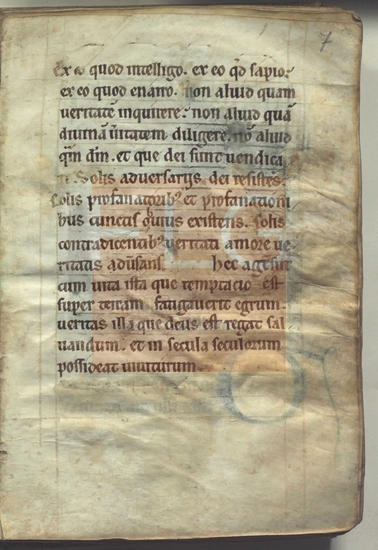 7
ex eo quod intelligo. ex eo qđ sapio.
ex eo quod enarro. non aliud quam
veritatē inquirere. non aliud quā
diuinā ūitatem diligere. nō aliud
qm̄ dm̄. et que dei sunt uendica
Solis aduersarijs dei resistēs.
Solis profanatoribꝰ et profanationi
bus cunctas existens. Solis
contradicentibꝰ ueritati amore ue
ritatis aduersans. hec agentē
cum uita ista que temptacio est
super terram. fatigauerit egrum.
ueritas illa que deus est regat sal
uandum. et in secula seculorum
possideat uicturum.